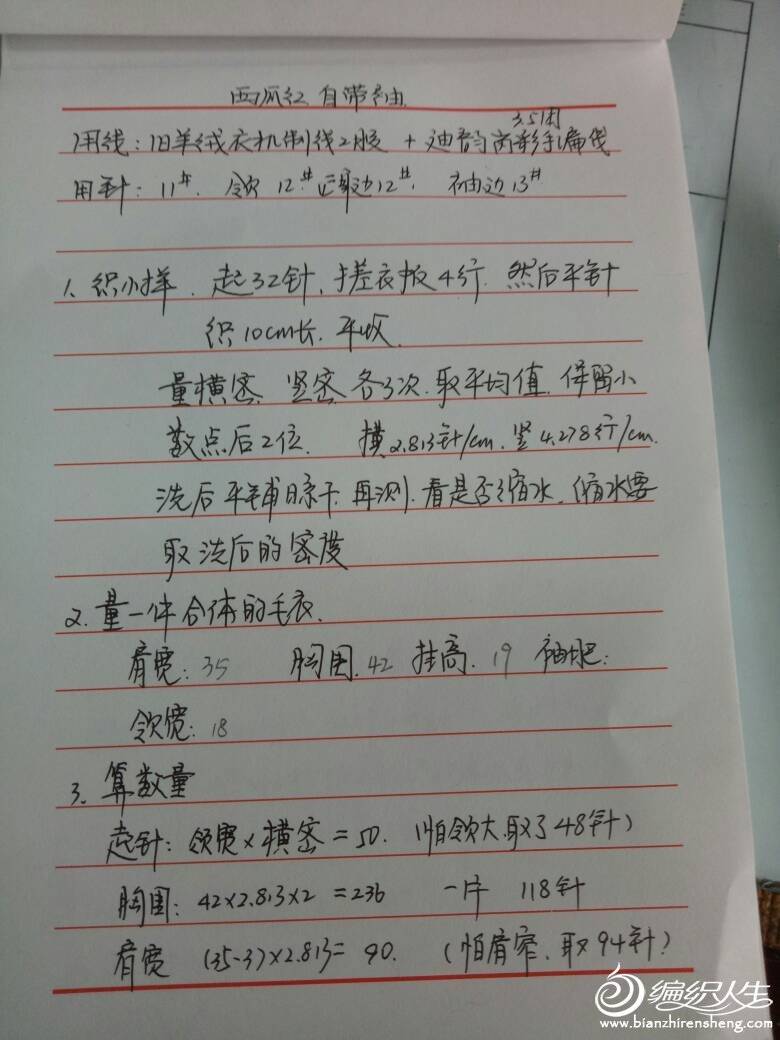 西瓜红 自带袖
3.5团
用线：旧羊绒衣机制线2股 + 迪韵 彩手编线
用针：11#. 领12#. 边12#. 袖边13#
1、织小样. 起32针, 搓衣板4行. 然后平针
织10cm长. 平收.
量横密 竖密 各3次. 取平均值. 保留小
数点后2位. 横2.813针/cm. 竖4.278行/cm.
洗后平铺晾干 再测. 看是否缩水. 缩水要
取洗后的密度
2. 量一件合体的毛衣.
肩宽: 35 胸围. 42 挂高. 19 袖肥:
领宽: 18
3. 算数量
起针: 领宽×横密=50. (怕领大.取了48针)
胸围: 42×2.813×2=236 一片 118针
肩宽 (35-3)×2.813=90. (怕肩窄. 取94针)
编织人生
www.bianzhirensheng.com